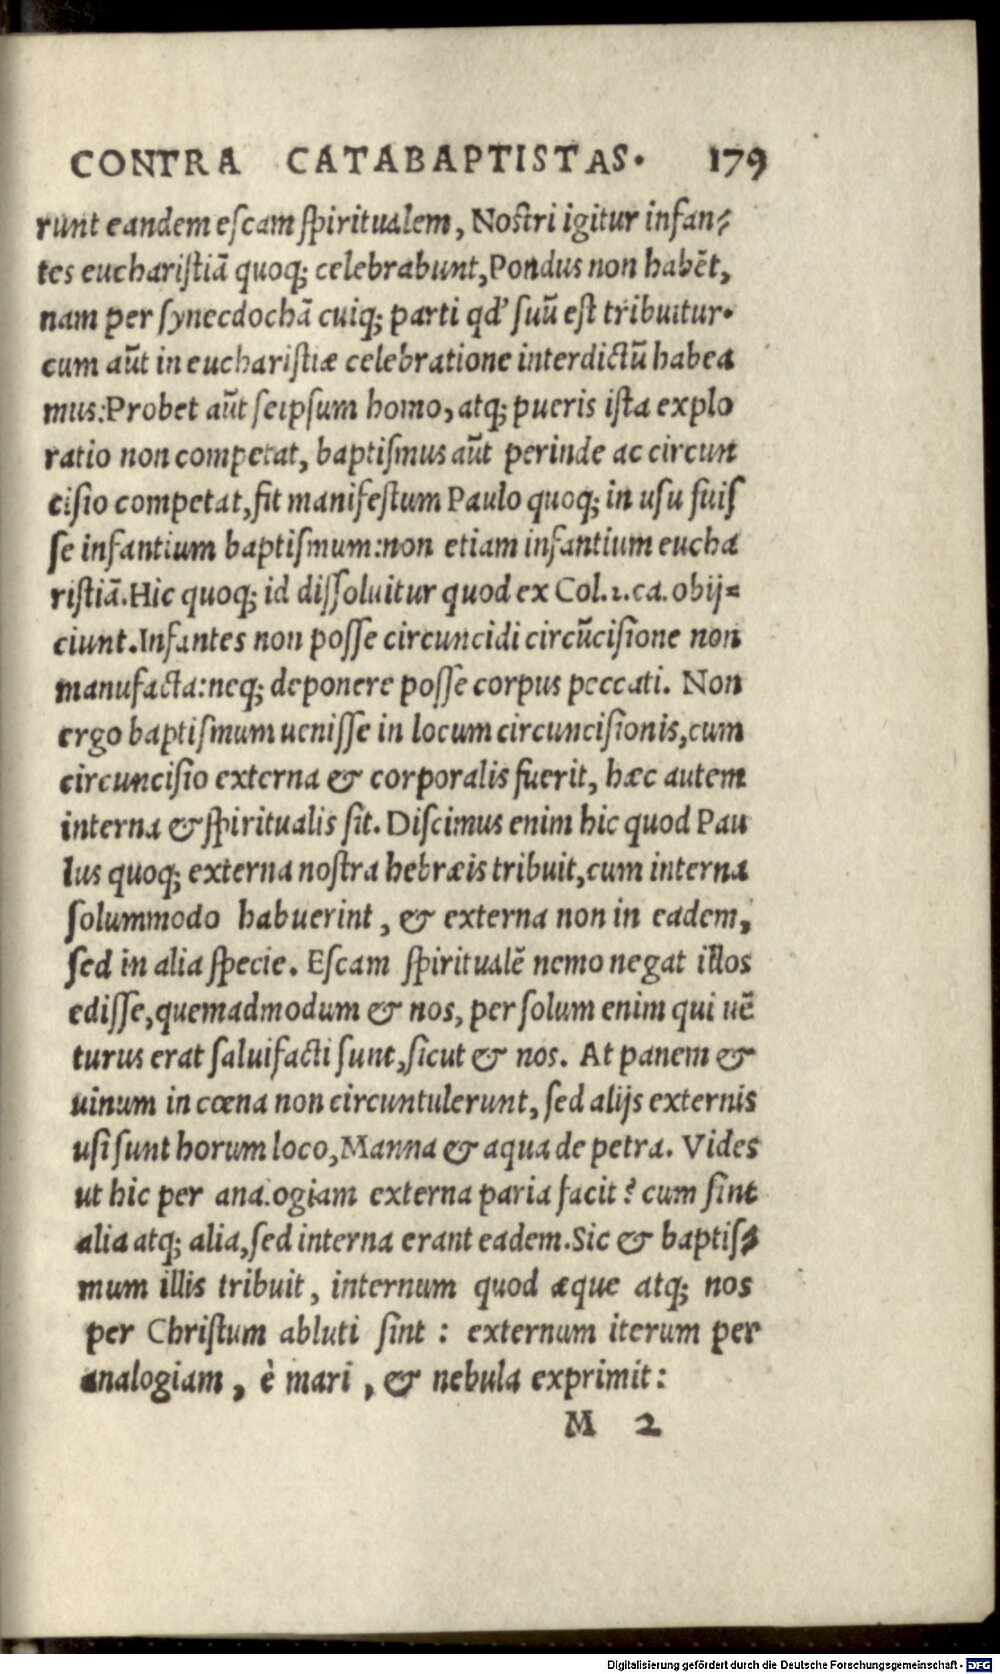 CONTRA CATABAPTISTAS. 179
runt eandem eſcam ſpiritualem, Noſtri igitur infan⸗
tes euchariſtiā quoq; celebrabunt, Pondus non habēt,
nam per ſynecdochā cuiq; parti qd' ſuū eſt tribuitur.
cum aūt in euchariſtiæ celebratione interdictū habea
mus: Probet aūt ſeipſum homo, atq; pueris iſta explo
ratio non competat, baptiſmus aūt perinde ac circun
ciſio competat, fit manifeſtum Paulo quoq; in uſu fuiſ
ſe infantium baptiſmum: non etiam infantium eucha
riſtiā. Hic quoq; id diſſoluitur quod ex Col. 2. ca. obij⸗
ciunt. Infantes non poſſe circuncidi circūciſione non
manufacta: neq; deponere poſſe corpus peccati. Non
ergo baptiſmum ueniſſe in locum circunciſionis, cum
circunciſio externa & corporalis fuerit, hæc autem
interna & ſpiritualis ſit. Diſcimus enim hic quod Pau
lus quoq; externa noſtra hebræis tribuit, cum interna
ſolummodo habuerint, & externa non in eadem,
ſed in alia ſpecie. Eſcam ſpiritualē nemo negat illos
ediſſe, quemadmodum & nos, per ſolum enim qui uē
turus erat ſaluifacti ſunt, ſicut & nos. At panem &
uinum in cœna non circuntulerunt, ſed alijs externis
uſi ſunt horum loco, Manna & aqua de petra. Vides
ut hic per analogiam externa paria facit? cum ſint
alia atq; alia, ſed interna erant eadem. Sic & baptiſ⸗
mum illis tribuit, internum quod æque atq; nos
per Chriſtum abluti ſint: externum iterum per
analogiam, è mari, & nebula exprimit:
M 2
Digitalisierung gefördert durch die Deutsche Forschungsgemeinschaft - DFG